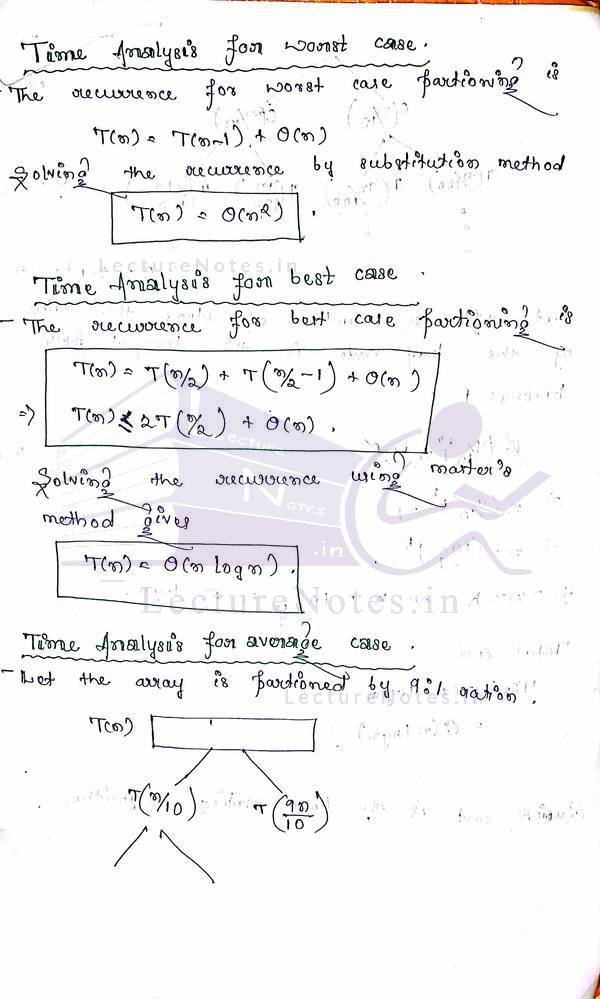 Time Analysis for worst case.
- The recurrence for worst case partioning is
T(n) = T(n-1) + Θ(n)
Solving the recurrence by substitution method
T(n) = Θ(n²).
LectureNotes.in
Time Analysis for best case.
- The recurrence for best case partioning is
T(n) = T(n/2) + T(n/2 - 1) + Θ(n)
⇒ T(n) ≤ 2T(n/2) + Θ(n).
Lecture
Notes
.in
Solving the recurrence using master's
method gives
T(n) = Θ(n log n).
LectureNotes.in
Time Analysis for average case.
- Let the array is partioned by 9:1 ration.
LectureNotes.in
T(n)
T(n/10) T(9n/10)